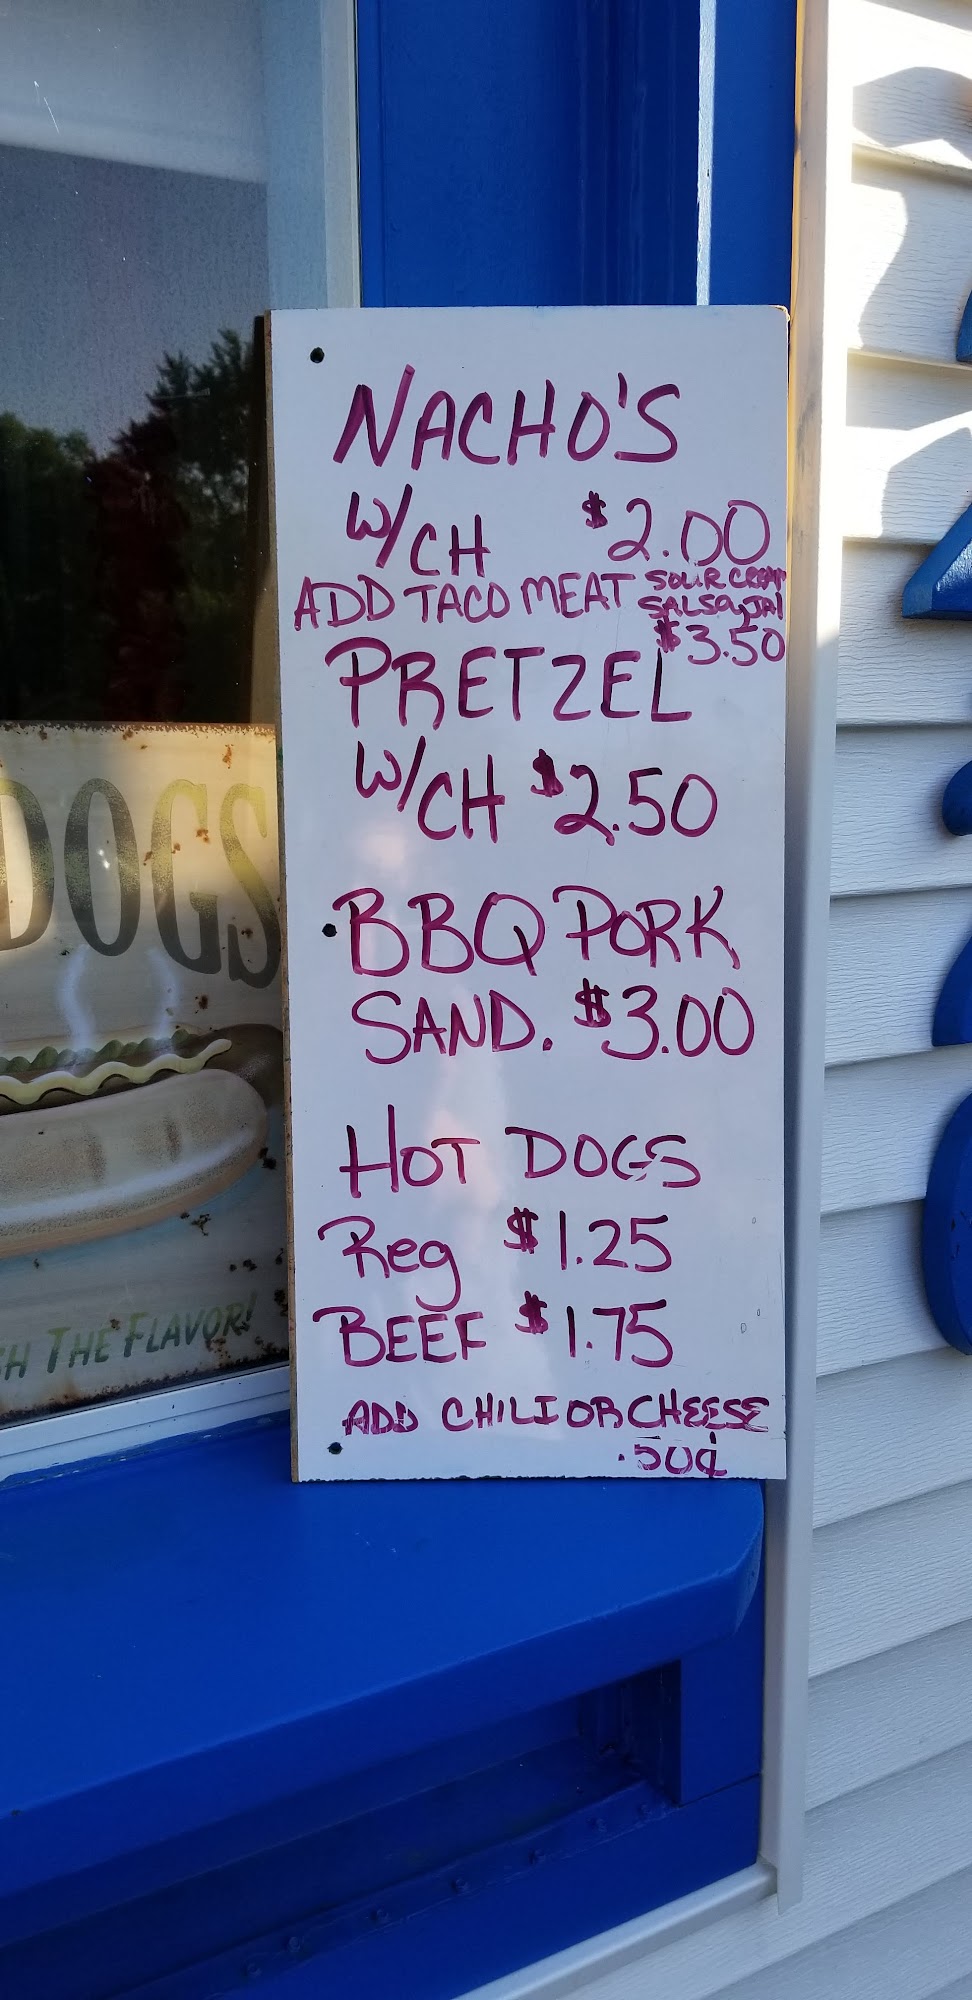 NACHO'S
W/CH $2.00
ADD TACO MEAT SOUR CREAM
SALSA, JAL
$3.50
PRETZEL
W/CH $2.50
BBQ PORK
SAND. $3.00
HOT DOGS
Reg $1.25
BEEF $1.75
ADD CHILI OR CHEESE
.50¢
DOGS
THE FLAVOR!